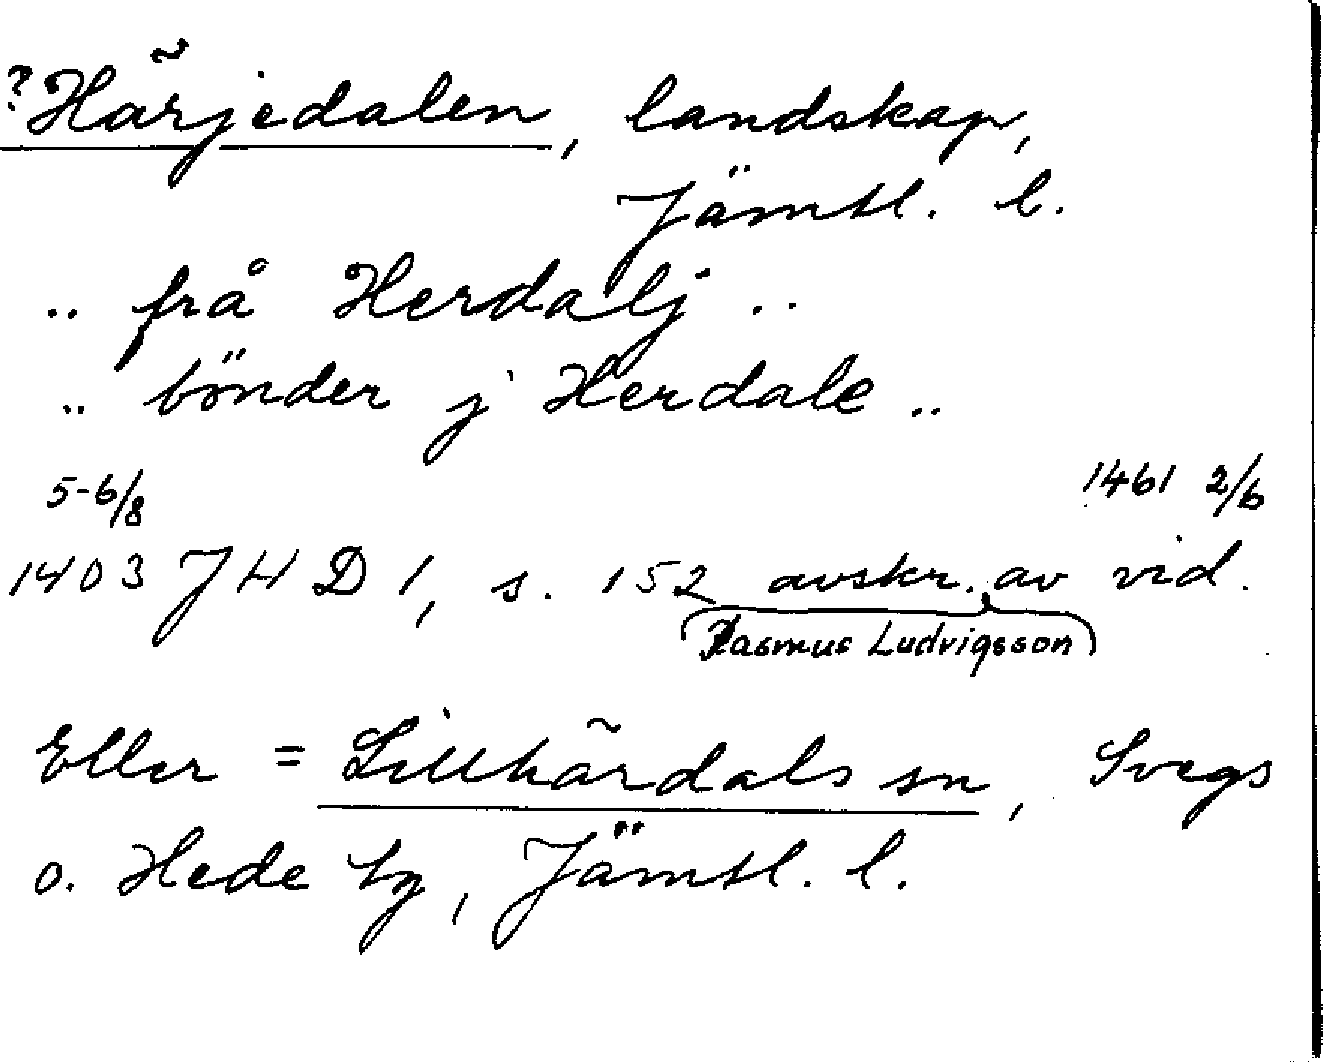 ?Härjedalen, landskap,
Jämtl. l.
.. frå Herdalj ..
.. bönder j Herdale ..
5-6/8 1461 2/6
1403 JHD 1, s. 152 avskr. av vid.
Rasmus Ludvigsson
Eller = Lillhärdals sn, Svegs
o. Hede tg, Jämtl. l.